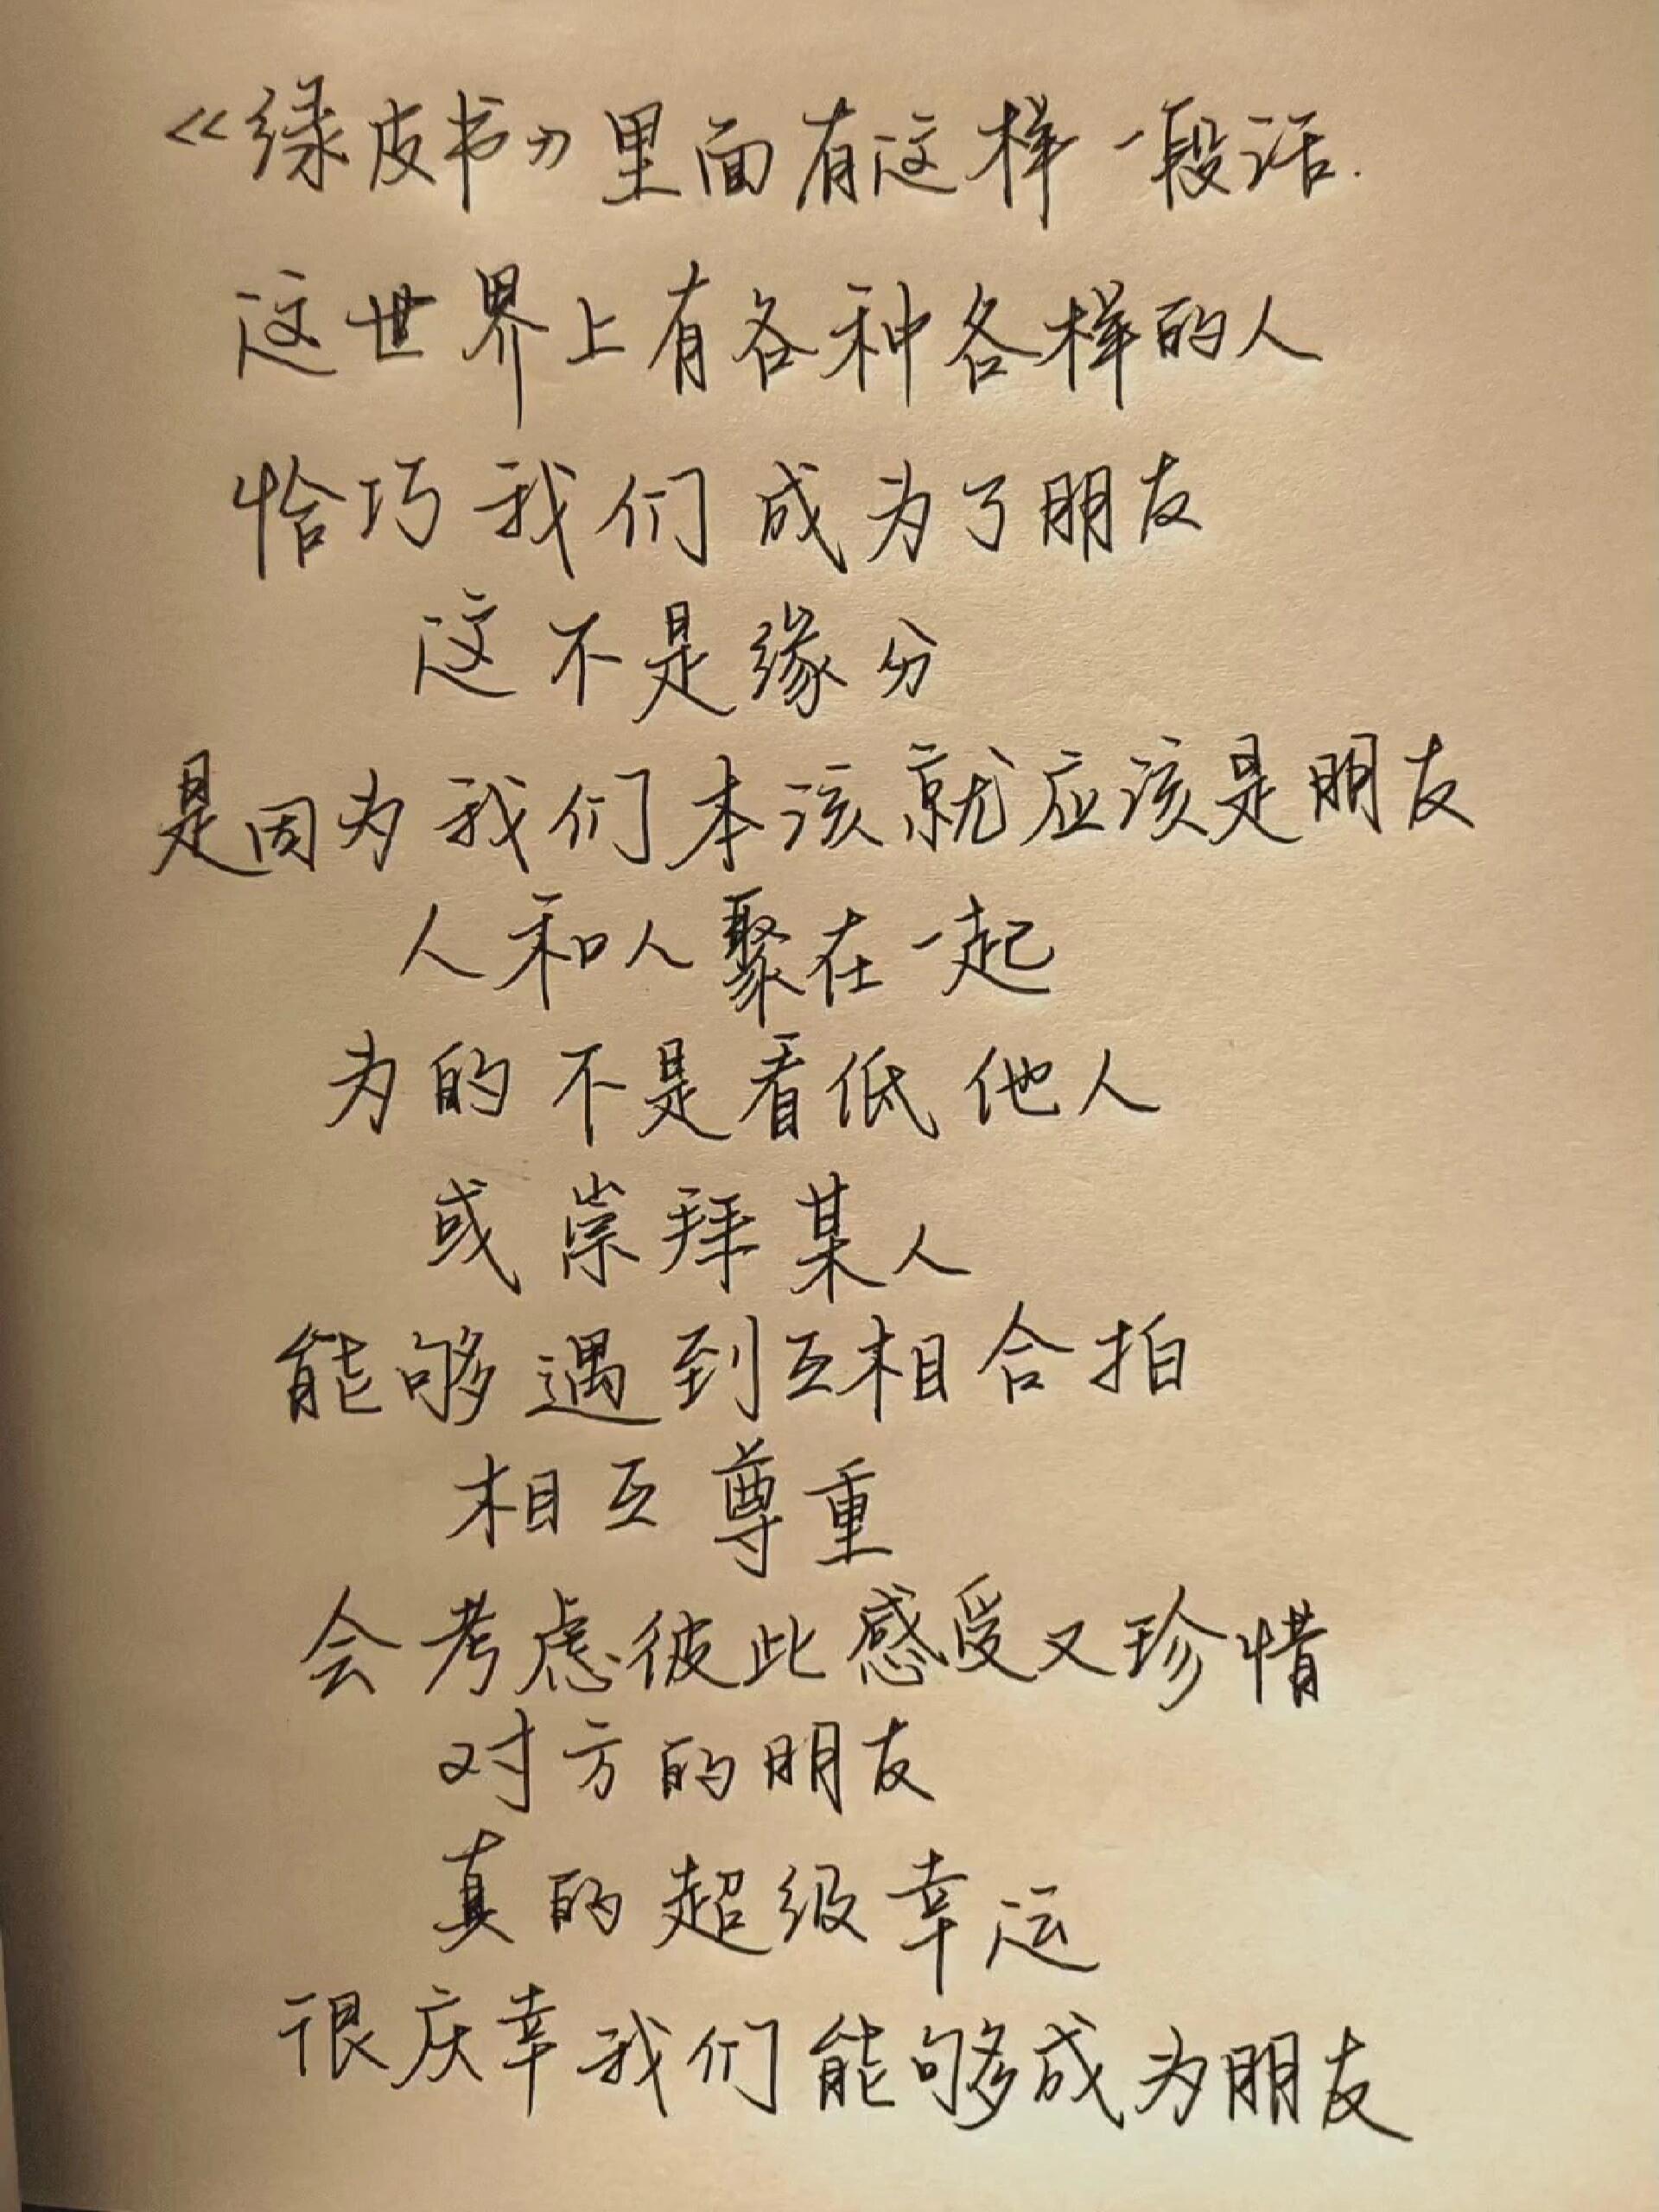 《绿皮书》里面有这样一段话.
这世界上有各种各样的人
恰巧我们成为了朋友
这不是缘分
是因为我们本该就应该是朋友
人和人聚在一起
为的不是看低他人
或崇拜某人
能够遇到互相合拍
相互尊重
会考虑彼此感受又珍惜
对方的朋友
真的超级幸运
很庆幸我们能够成为朋友